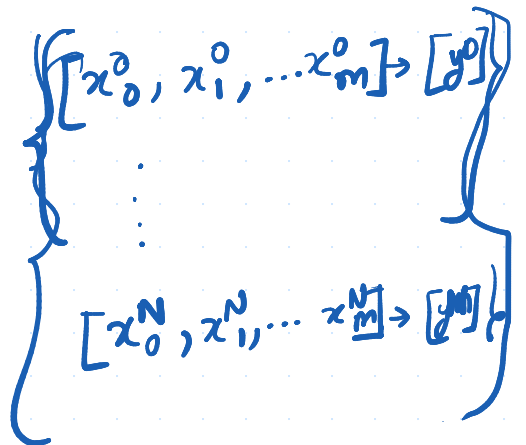 { [x_0^0, x_1^0, ... x_m^0] → [y^0]
⋮
[x_0^N, x_1^N, ... x_m^N] → [y^N] }